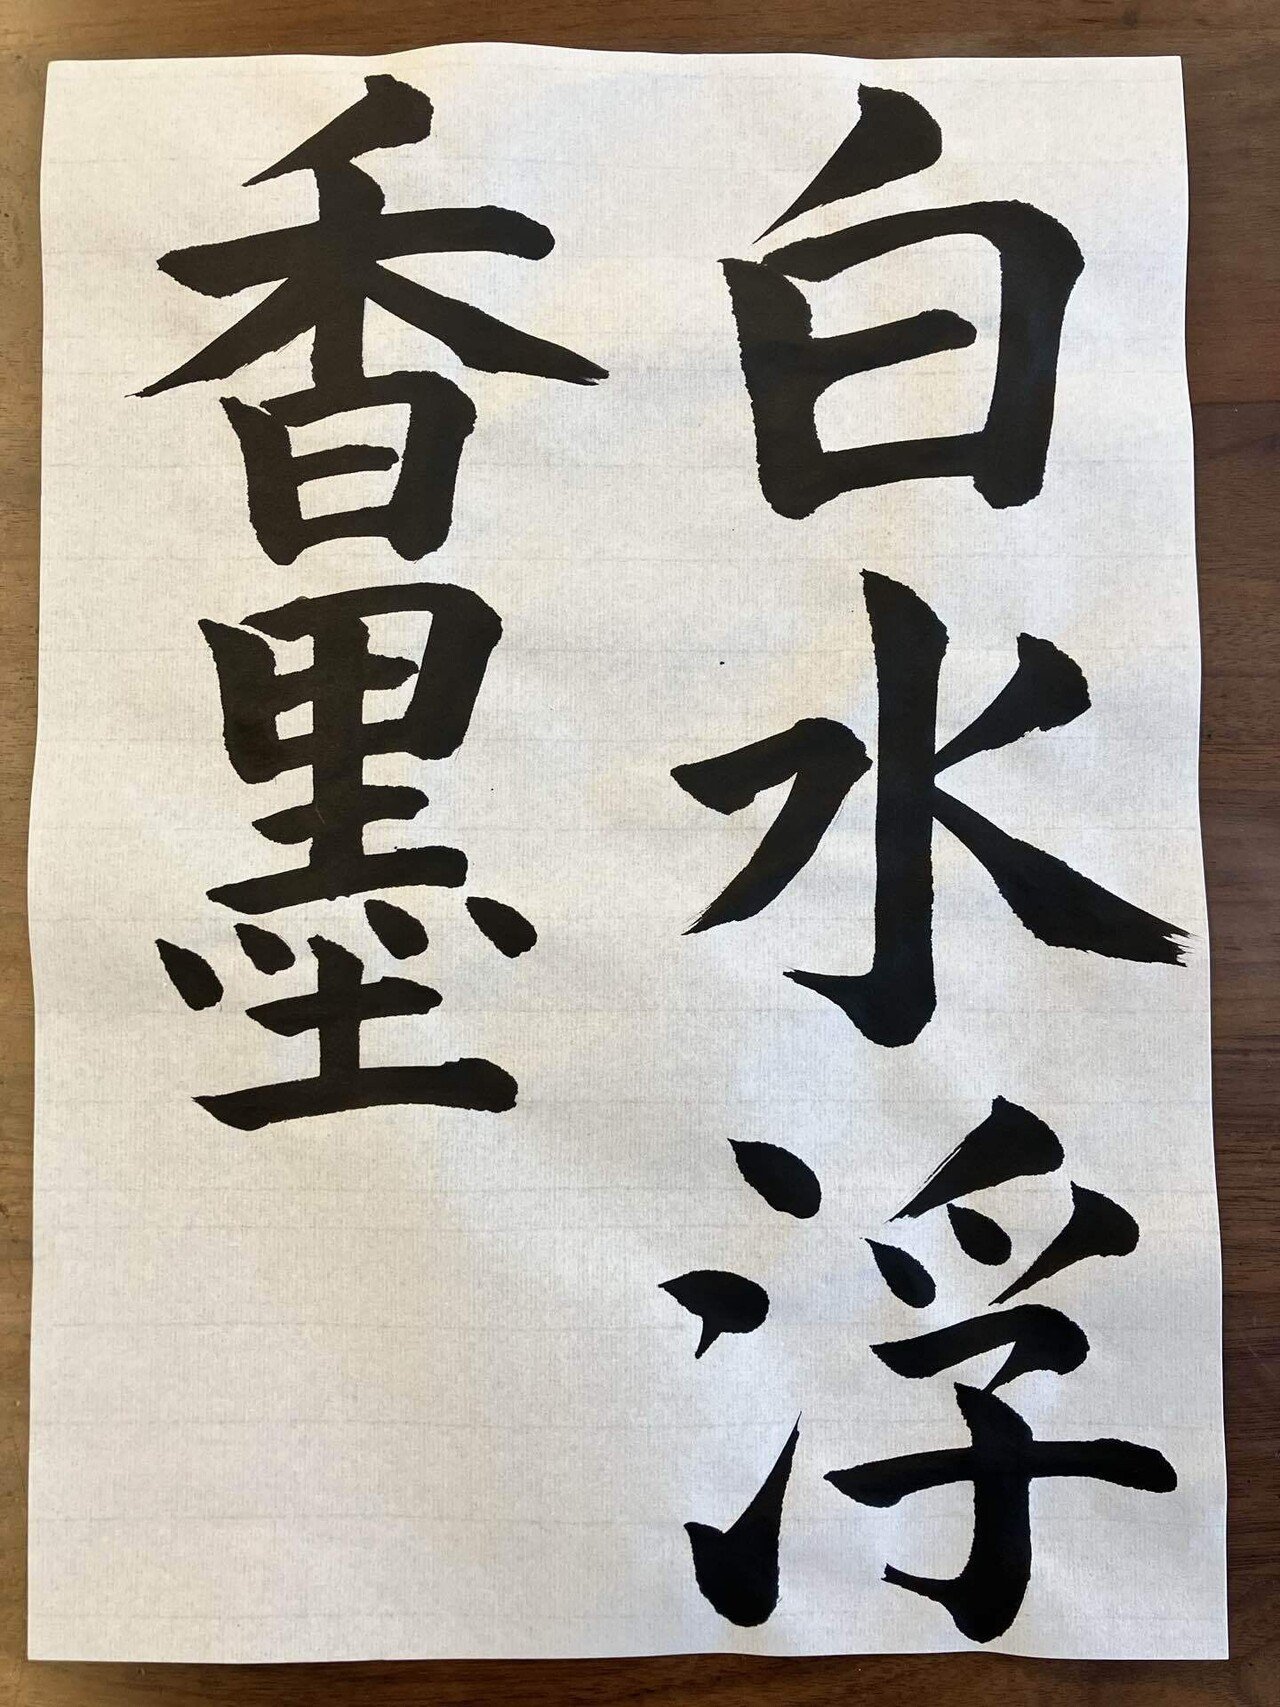 白水浮
香墨